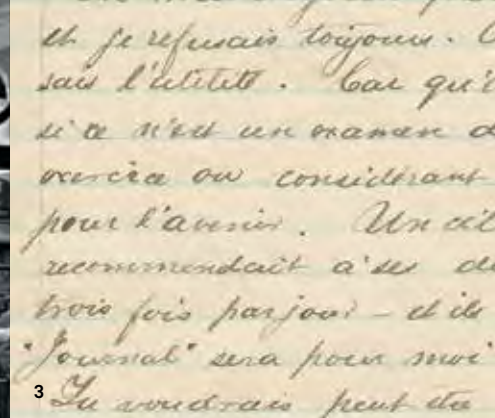 et je refusais toujours.
sais l'utilité. Car qu'
si ce n'est un examen
ou considérant
pour l'avenir. Un
recommendait à ses
trois fois par jour – et ils
"Journal" sera pour moi
3 Tu voudrais peut